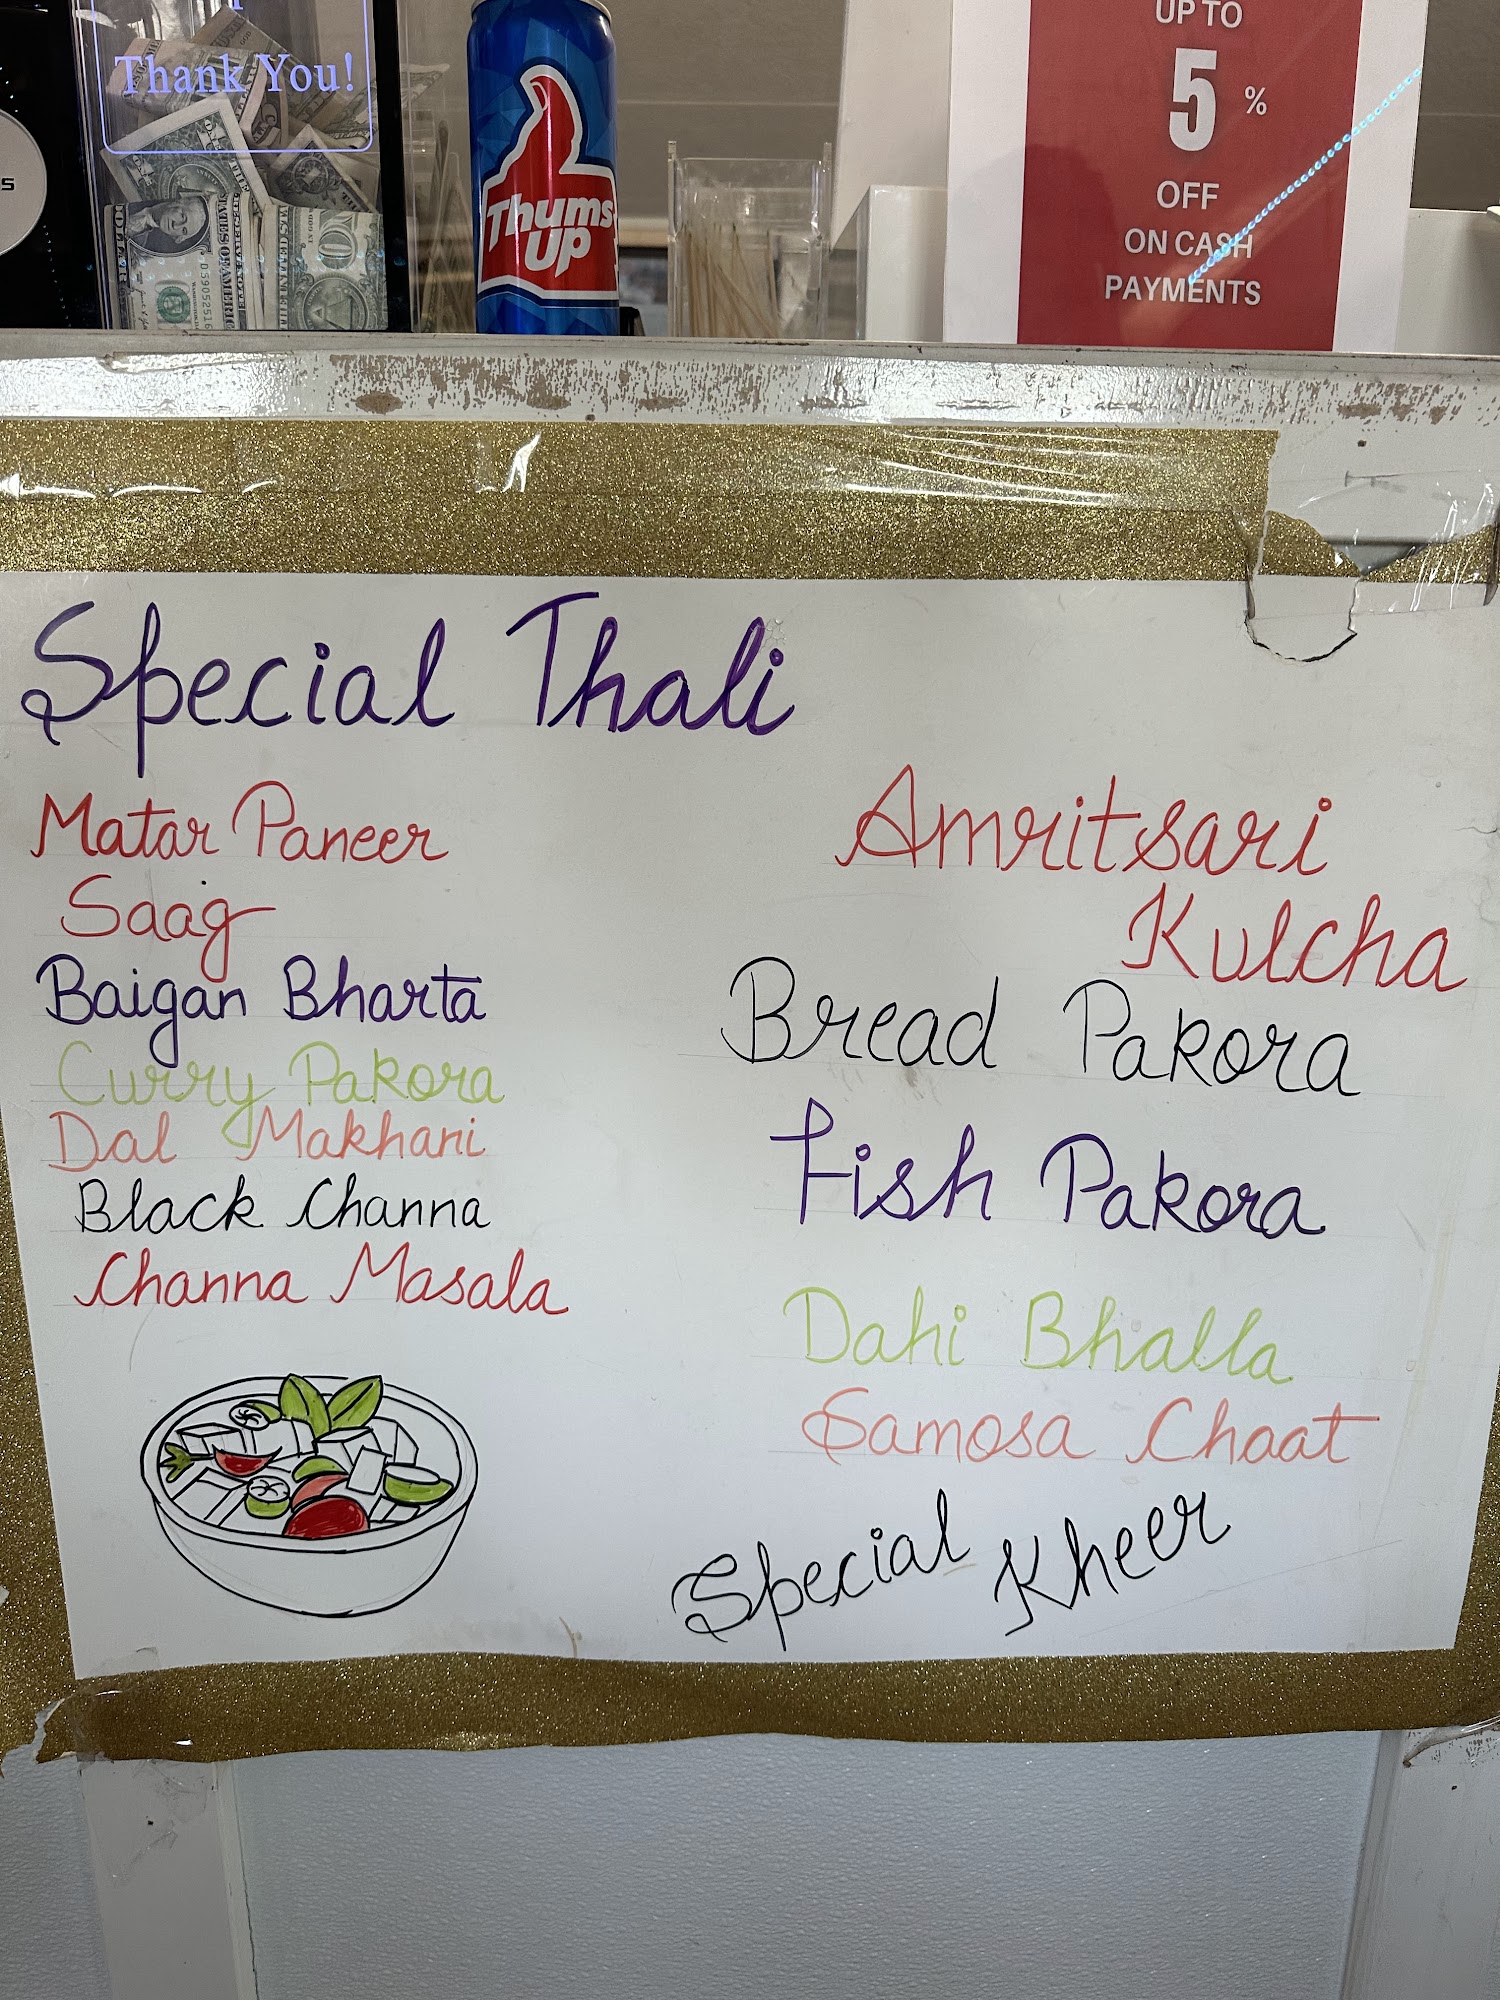 Thank You!
Thums
Up
UP TO
5 %
OFF
ON CASH
PAYMENTS
Special Thali
Matar Paneer
Saag
Baigan Bharta
Curry Pakora
Dal Makhani
Black Channa
Channa Masala
Amritsari
Kulcha
Bread Pakora
Fish Pakora
Dahi Bhalla
Samosa Chaat
Special Kheer